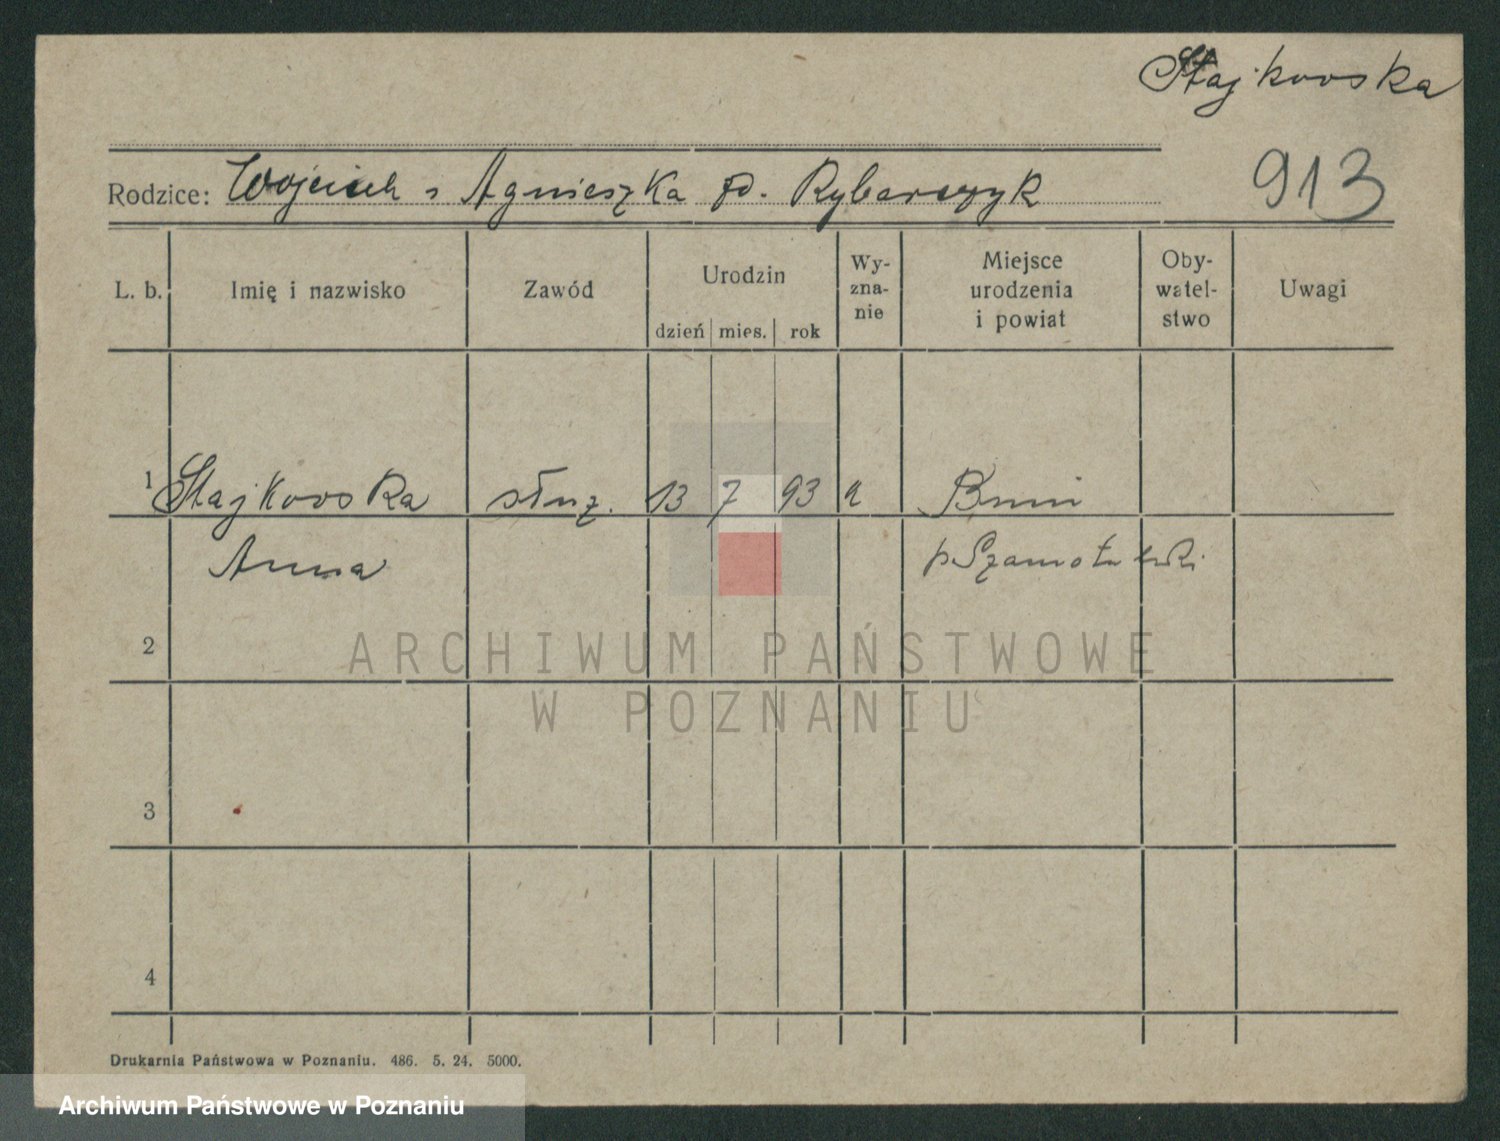 Stajkowska
Rodzice: Wojciech i Agnieszka d. Rybarczyk
913
L. b. Imię i nazwisko Zawód Urodzin Wy-zna-nie Miejsce urodzenia i powiat Oby-watel-stwo Uwagi
dzień mies. rok
1 Stajkowska służ. 13 7 93 Bnin
Anna p Szamotulski
2
ARCHIWUM PAŃSTWOWE
W POZNANIU
3
4
Drukarnia Państwowa w Poznaniu. 486. 5. 24. 5000.
Archiwum Państwowe w Poznaniu